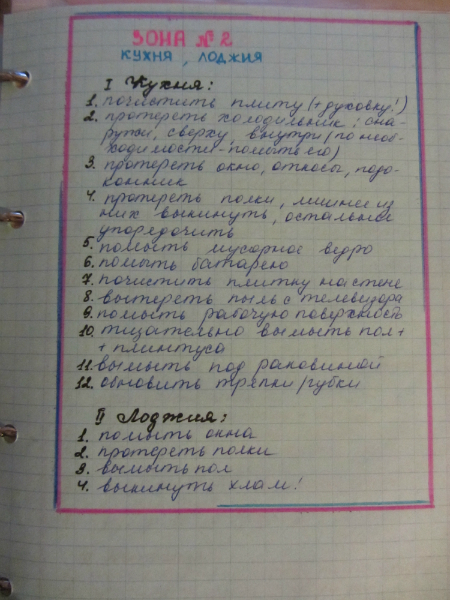 ЗОНА № 2
КУХНЯ, ЛОДЖИЯ
I Кухня:
1. почистить плиту (+ духовку!)
2. протереть холодильник: сна-
ружи, сверху, внутри (по необ-
ходимости - помыть его)
3. протереть окно, откосы, подо-
конник
4. протереть полки, лишнее из
них выкинуть, остальное
упорядочить
5. помыть мусорное ведро
6. помыть батарею
7. почистить плитку на стене
8. вытереть пыль с телевизора
9. помыть рабочую поверхность
10. тщательно вымыть пол +
+ плинтуса
11. вымыть под раковиной
12. обновить тряпки/губки
II Лоджия:
1. помыть окна
2. протереть полки
3. вымыть пол
4. выкинуть хлам!